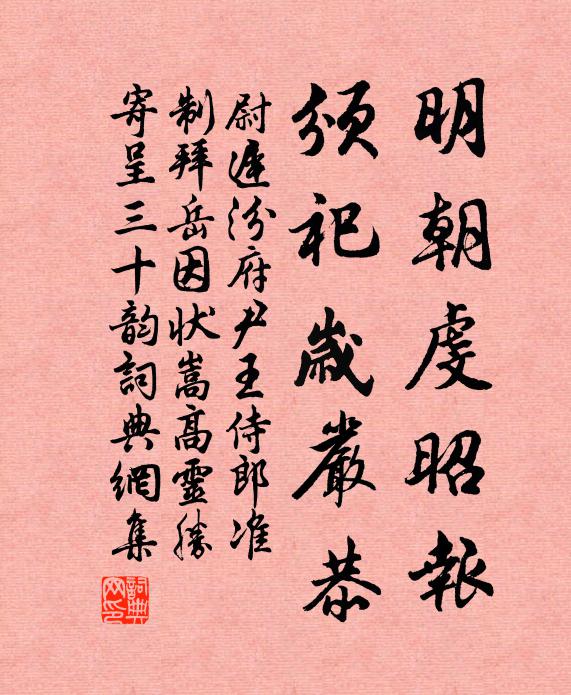 明朝虔昭報
頒祀歲嚴恭
尉遲汾府尹王侍郎准
制拜岳因狀嵩高靈勝
寄呈三十韵詞典網集
詞典網印